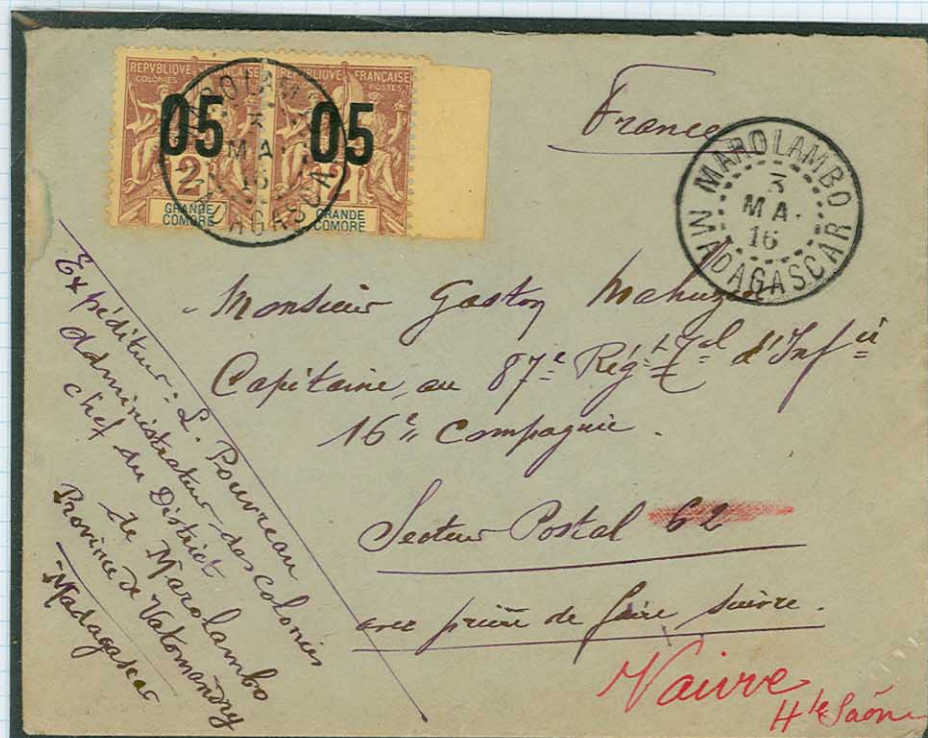 REPVBLIQUE FRANÇAISE REPVBLIQUE FRANÇAISE
COLONIES POSTES
05 05
2 2
GRANDE COMORE GRANDE COMORE
MAROLAMBO
3
MA.
16
MADAGASCAR
France
MAROLAMBO
3
MA.
16
MADAGASCAR
Monsieur Gaston
Capitaine au 87e Régt d'Infie
16e Compagnie.
Secteur Postal 62
avec prière de faire suivre.
Vaivre
Hte Saône
Expéditeur: L. Pouvreau
Administrateur des Colonies
chef du District
de Marolambo
Province de Vatomandry
Madagascar